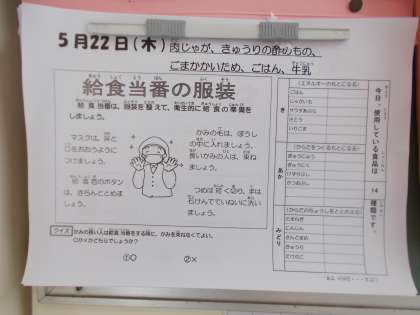 5月22日(木)肉じゃが、きゅうりの酢のもの、
ごまかかいため、ごはん、牛乳
給食当番の服装
給食当番は、服装を整えて、衛生的に給食の準備を
しましょう。
マスクは、鼻と
口をおおうように
つけましょう。
給食着のボタン
は、きちんととめま
しょう。
かみの毛は、ぼうし
の中に入れましょう。
長いかみの人は、束ね
ましょう。
つめは短く切り、手は
石けんでていねいに洗い
ましょう。
クイズ
かみの長い人は給食当番をする時に、かみを束ねなくてよい。
○か×かどちらでしょうか?
①○ ②×
今日、使用している食品は
14
種類です。
き
(エネルギーのもとになる)
ごはん
じゃがいも
さとう
あか
(からだをつくるもとになる)
ぎゅうにゅう
みどり
(からだのちょうしをととのえる)
たまねぎ
にんじん
さんどまめ
きゅうり